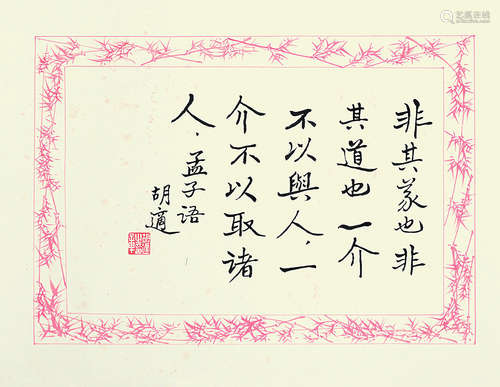 非其義也非
其道也一介
不以與人，一
介不以取諸
人．孟子語
胡適